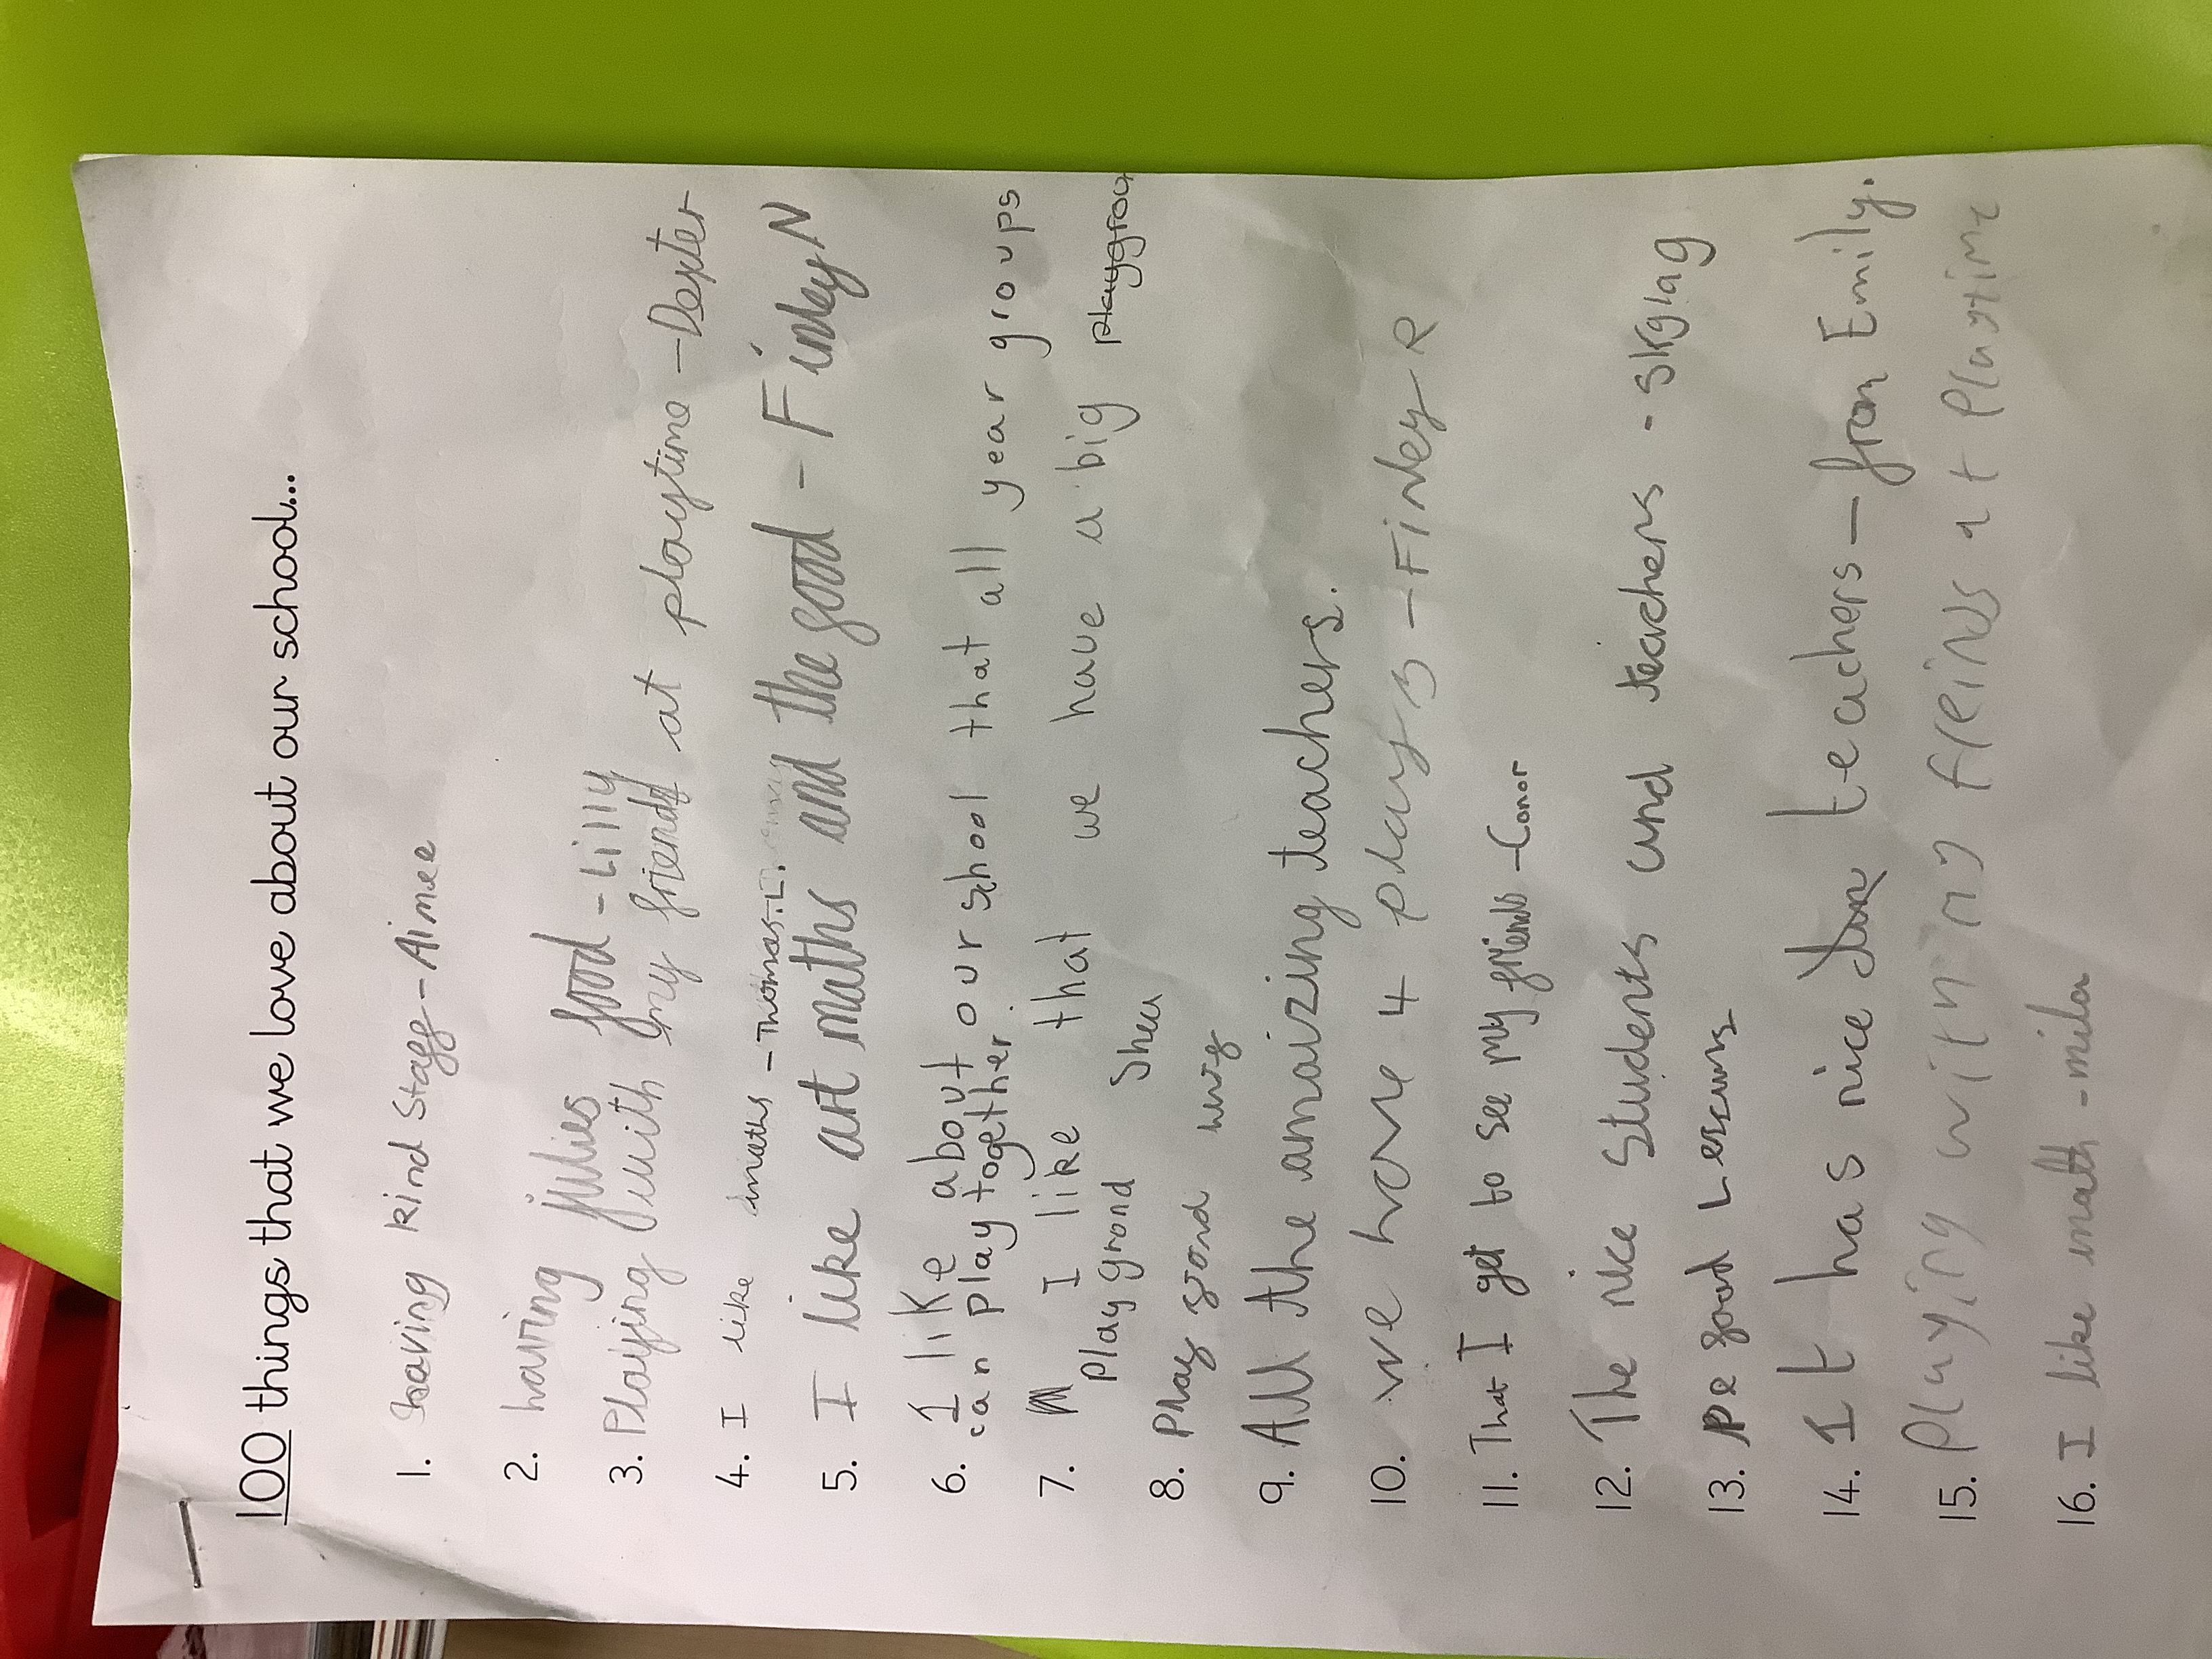 100 things that we love about our school...
1. having kind staff - Aimee
2. having julies food - Lilly
3. Playing with my friends at playtime - Dexter
4. I like maths - Thomas.L.
5. I like art maths and the food - Finley N
6. I like about our school that all year groups
can play together.
7. I like that we have a big
play grond Shea
8. Play grond
9. All the amaizing teachers.
10. we have 4 plays - Finley R
11. That I get to see my friends - Conor
12. The nice Students and teachers - Skylag
13. PE good
14. It has nice teachers - from Emily.
15. Playing with my freinds at Playtime
16. I like math - mila